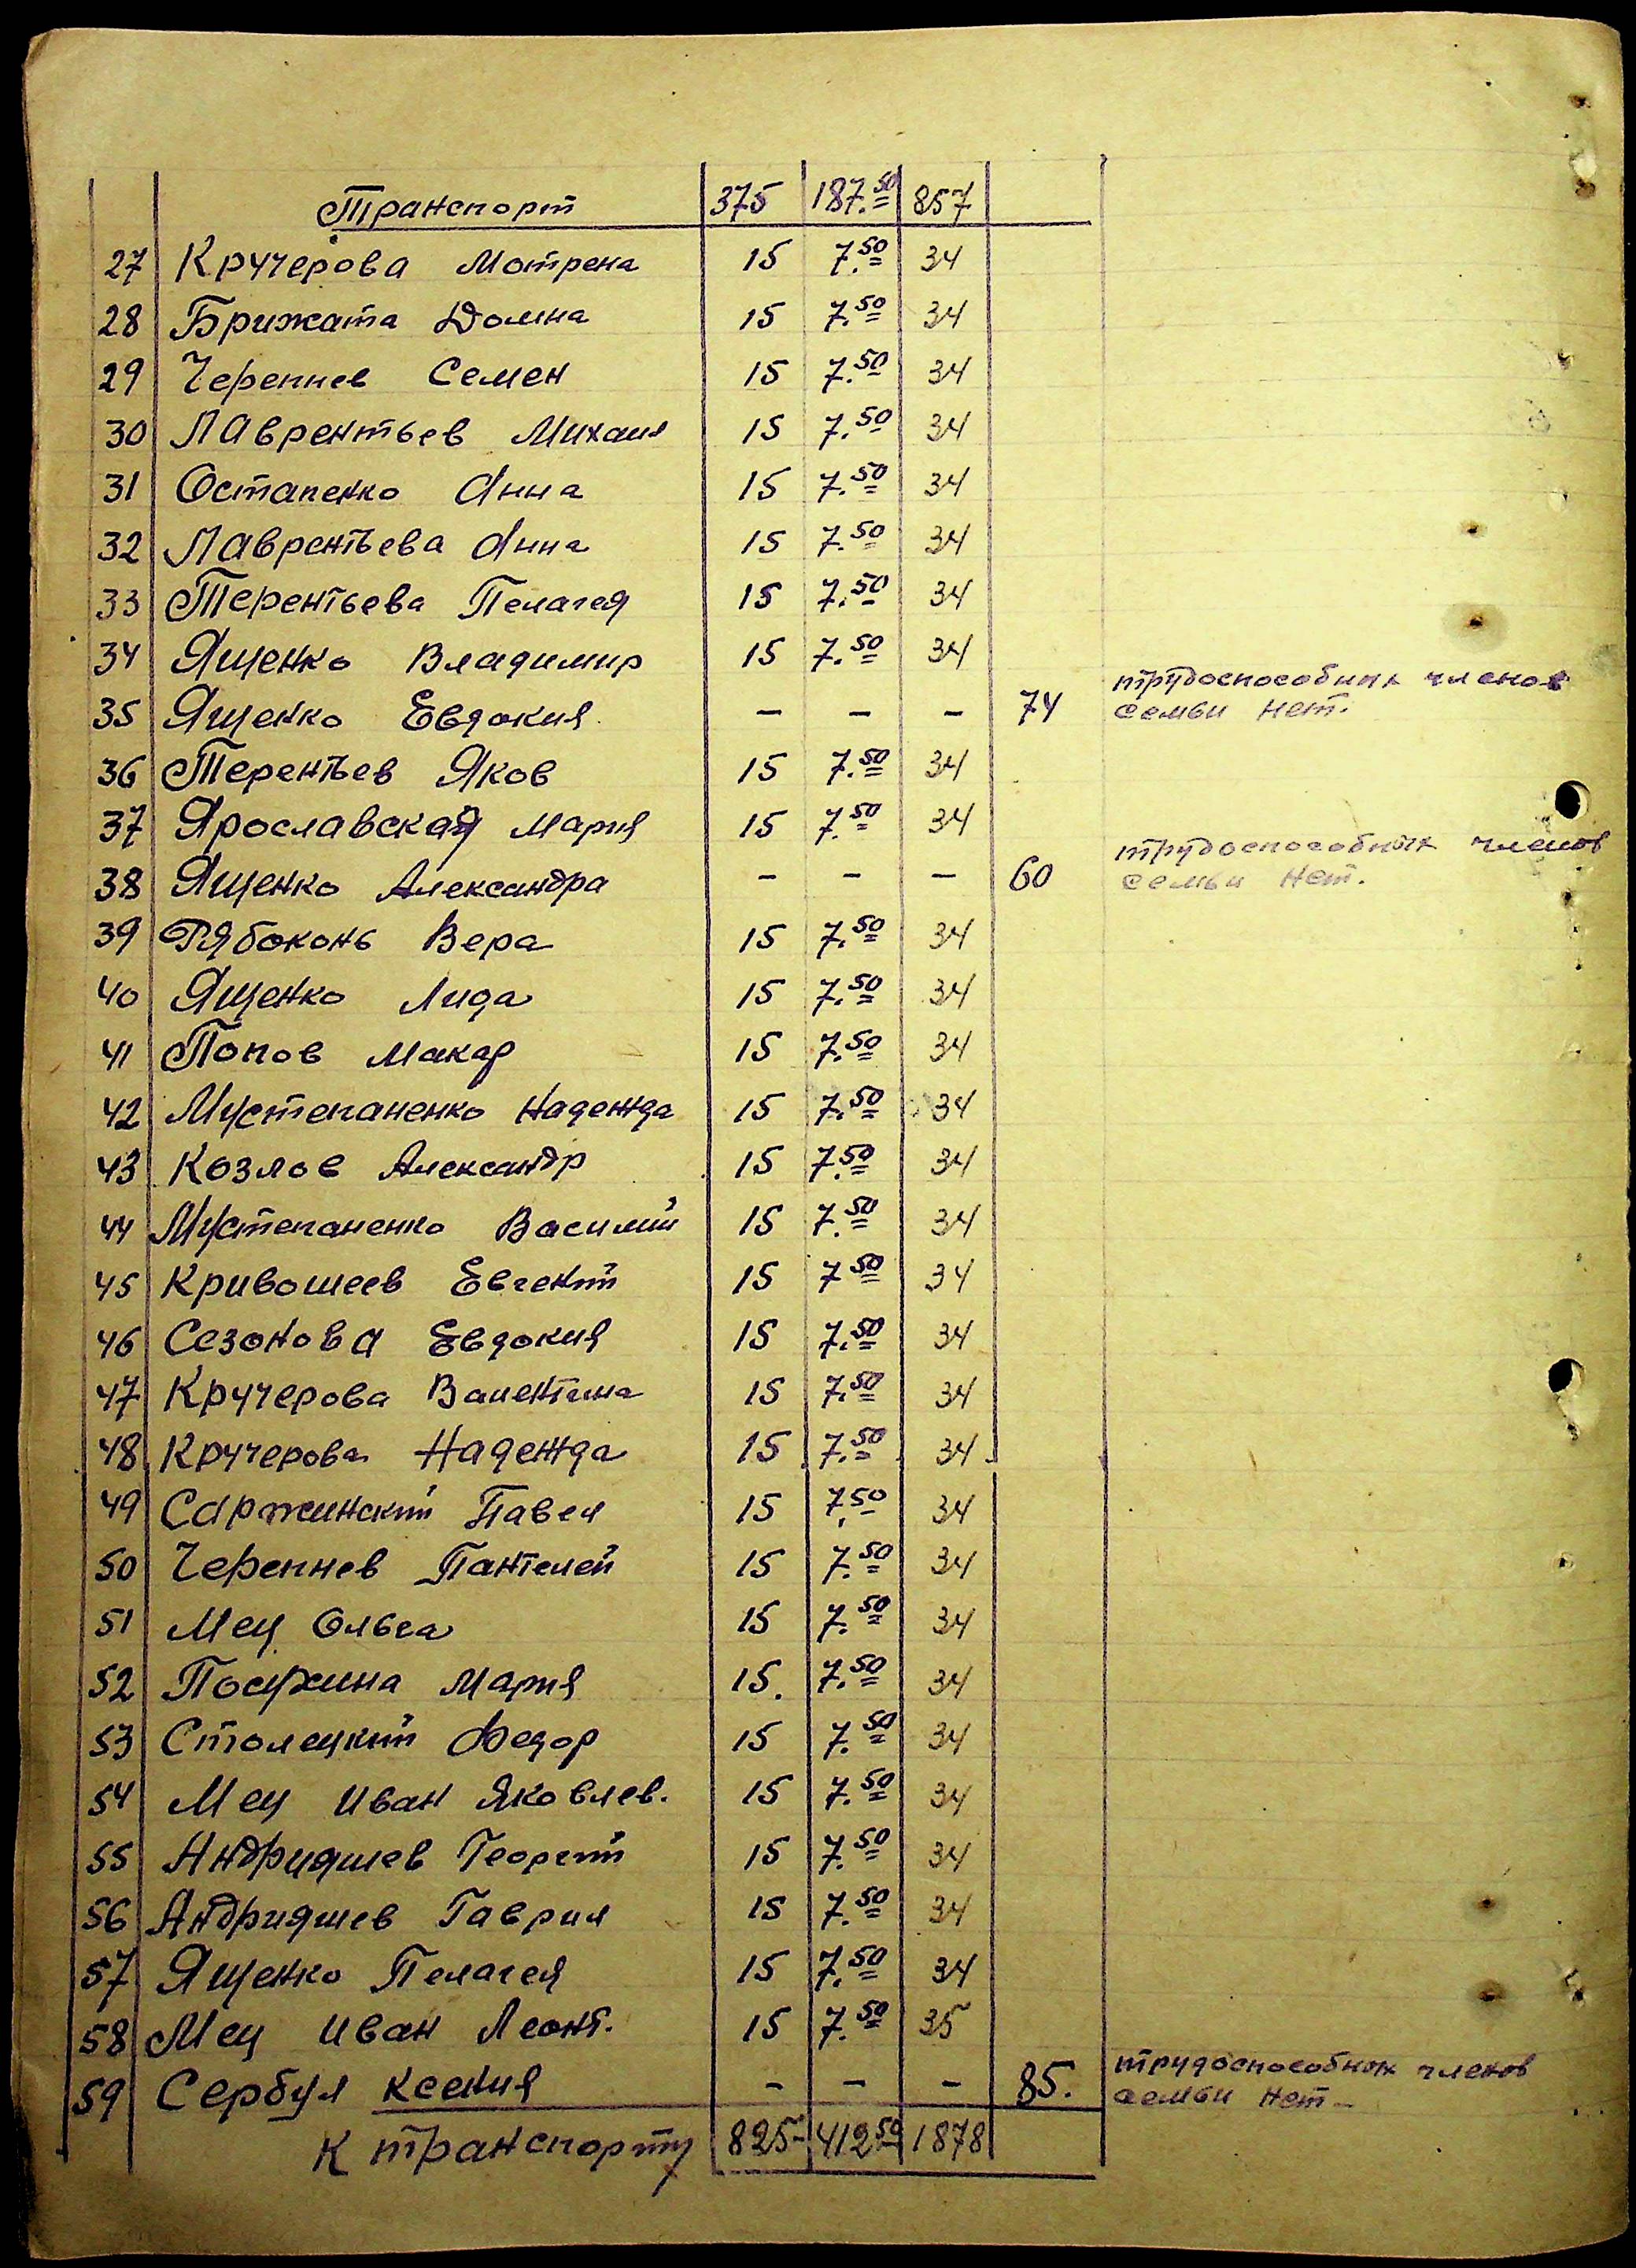 Транспорт 375 187.50 857
27 Кручерова Мотрена 15 7.50 34
28 Брижата Домна 15 7.50 34
29 Черепнев Семен 15 7.50 34
30 Лаврентьев Михаил 15 7.50 34
31 Остапенко Анна 15 7.50 34
32 Лаврентьева Анна 15 7.50 34
33 Терентьева Пелагея 15 7.50 34
34 Ященко Владимир 15 7.50 34
трудоспособных членов
35 Ященко Евдокия - - - 74 семьи нет.
36 Терентьев Яков 15 7.50 34
37 Ярославская Мария 15 7.50 34
трудоспособных членов
38 Ященко Александра - - - 60 семьи нет.
39 Рябоконь Вера 15 7.50 34
40 Ященко Лида 15 7.50 34
41 Попов Макар 15 7.50 34
42 Мустепаненко Надежда 15 7.50 34
43 Козлов Александр 15 7.50 34
44 Мустепаненко Василий 15 7.50 34
45 Кривошеев Евгений 15 7 50 34
46 Сезонова Евдокия 15 7.50 34
47 Кручерова Валентина 15 7.50 34
48 Кручерова Надежда 15 7.50 34
49 Саржинский Павел 15 7.50 34
50 Черепнев Пантелей 15 7.50 34
51 Мец Ольга 15 7.50 34
52 Мария 15. 7.50 34
53 Столецкий Федор 15 7.50 34
54 Мец Иван Яковлев. 15 7.50 34
55 Андрияшев Георгий 15 7.50 34
56 Андрияшев Гаврил 15 7.50 34
57 Ященко Пелагея 15 7.50 34
58 Мец Иван Леонт. 15 7.50 35
трудоспособных членов
59 Сербул Ксения - - - 85. семьи нет -
К транспорту 825- 412 50 1878